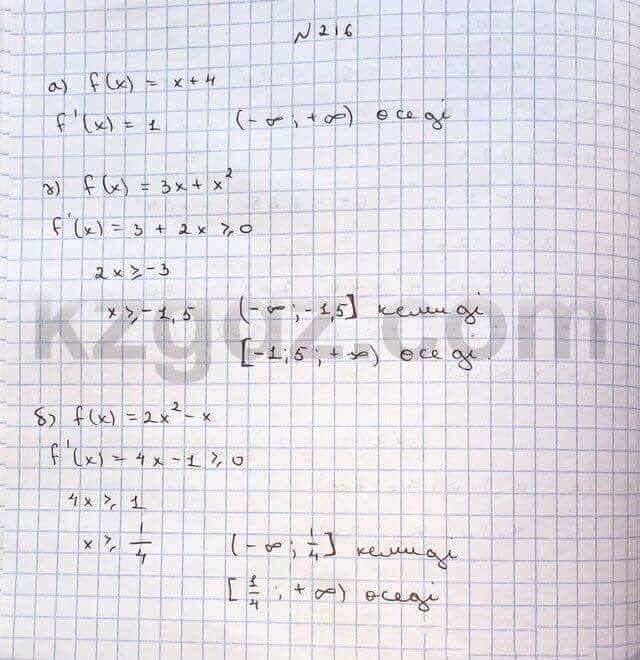 N 216
а) f(x) = x + 4
f'(x) = 1 (-∞; +∞) өседі
в) f(x) = 3x + x²
f'(x) = 3 + 2x ⩾ 0
2x ⩾ -3
x ⩾ -1,5 (-∞; -1,5] кемиді
[-1;5; +∞) өседі.
kzgdz.com
б) f(x) = 2x² - x
f'(x) = 4x - 1 ⩾ 0
4x ⩾ 1
x ⩾ 1/4 (-∞; 1/4] кемиді
[1/4; +∞) өседі